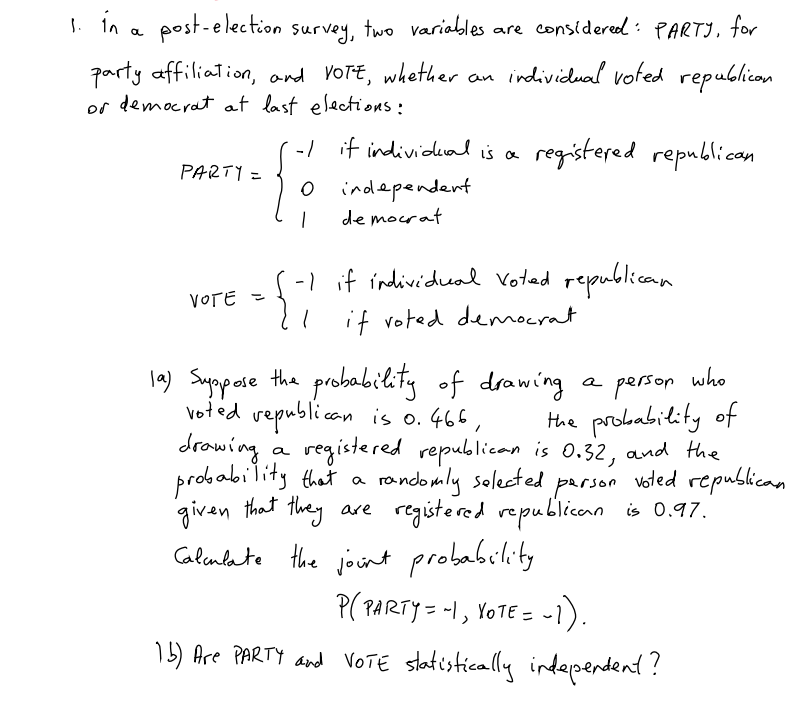 1. In a post-election survey, two variables are considered: PARTY, for
party affiliation, and VOTE, whether an individual voted republican
or democrat at last elections:
PARTY = { -1 if individual is a registered republican
0 independent
1 democrat
VOTE = { -1 if individual voted republican
1 if voted democrat
1a) Suppose the probability of drawing a person who
voted republican is 0.466, the probability of
drawing a registered republican is 0.32, and the
probability that a randomly selected person voted republican
given that they are registered republican is 0.97.
Calculate the joint probability
P(PARTY = -1, VOTE = -1).
1b) Are PARTY and VOTE statistically independent?